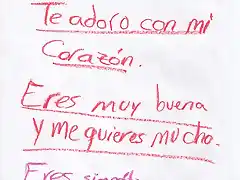 Te adoro con mi
Corazón.
Eres muy buena
Y me quieres mucho.
Eres